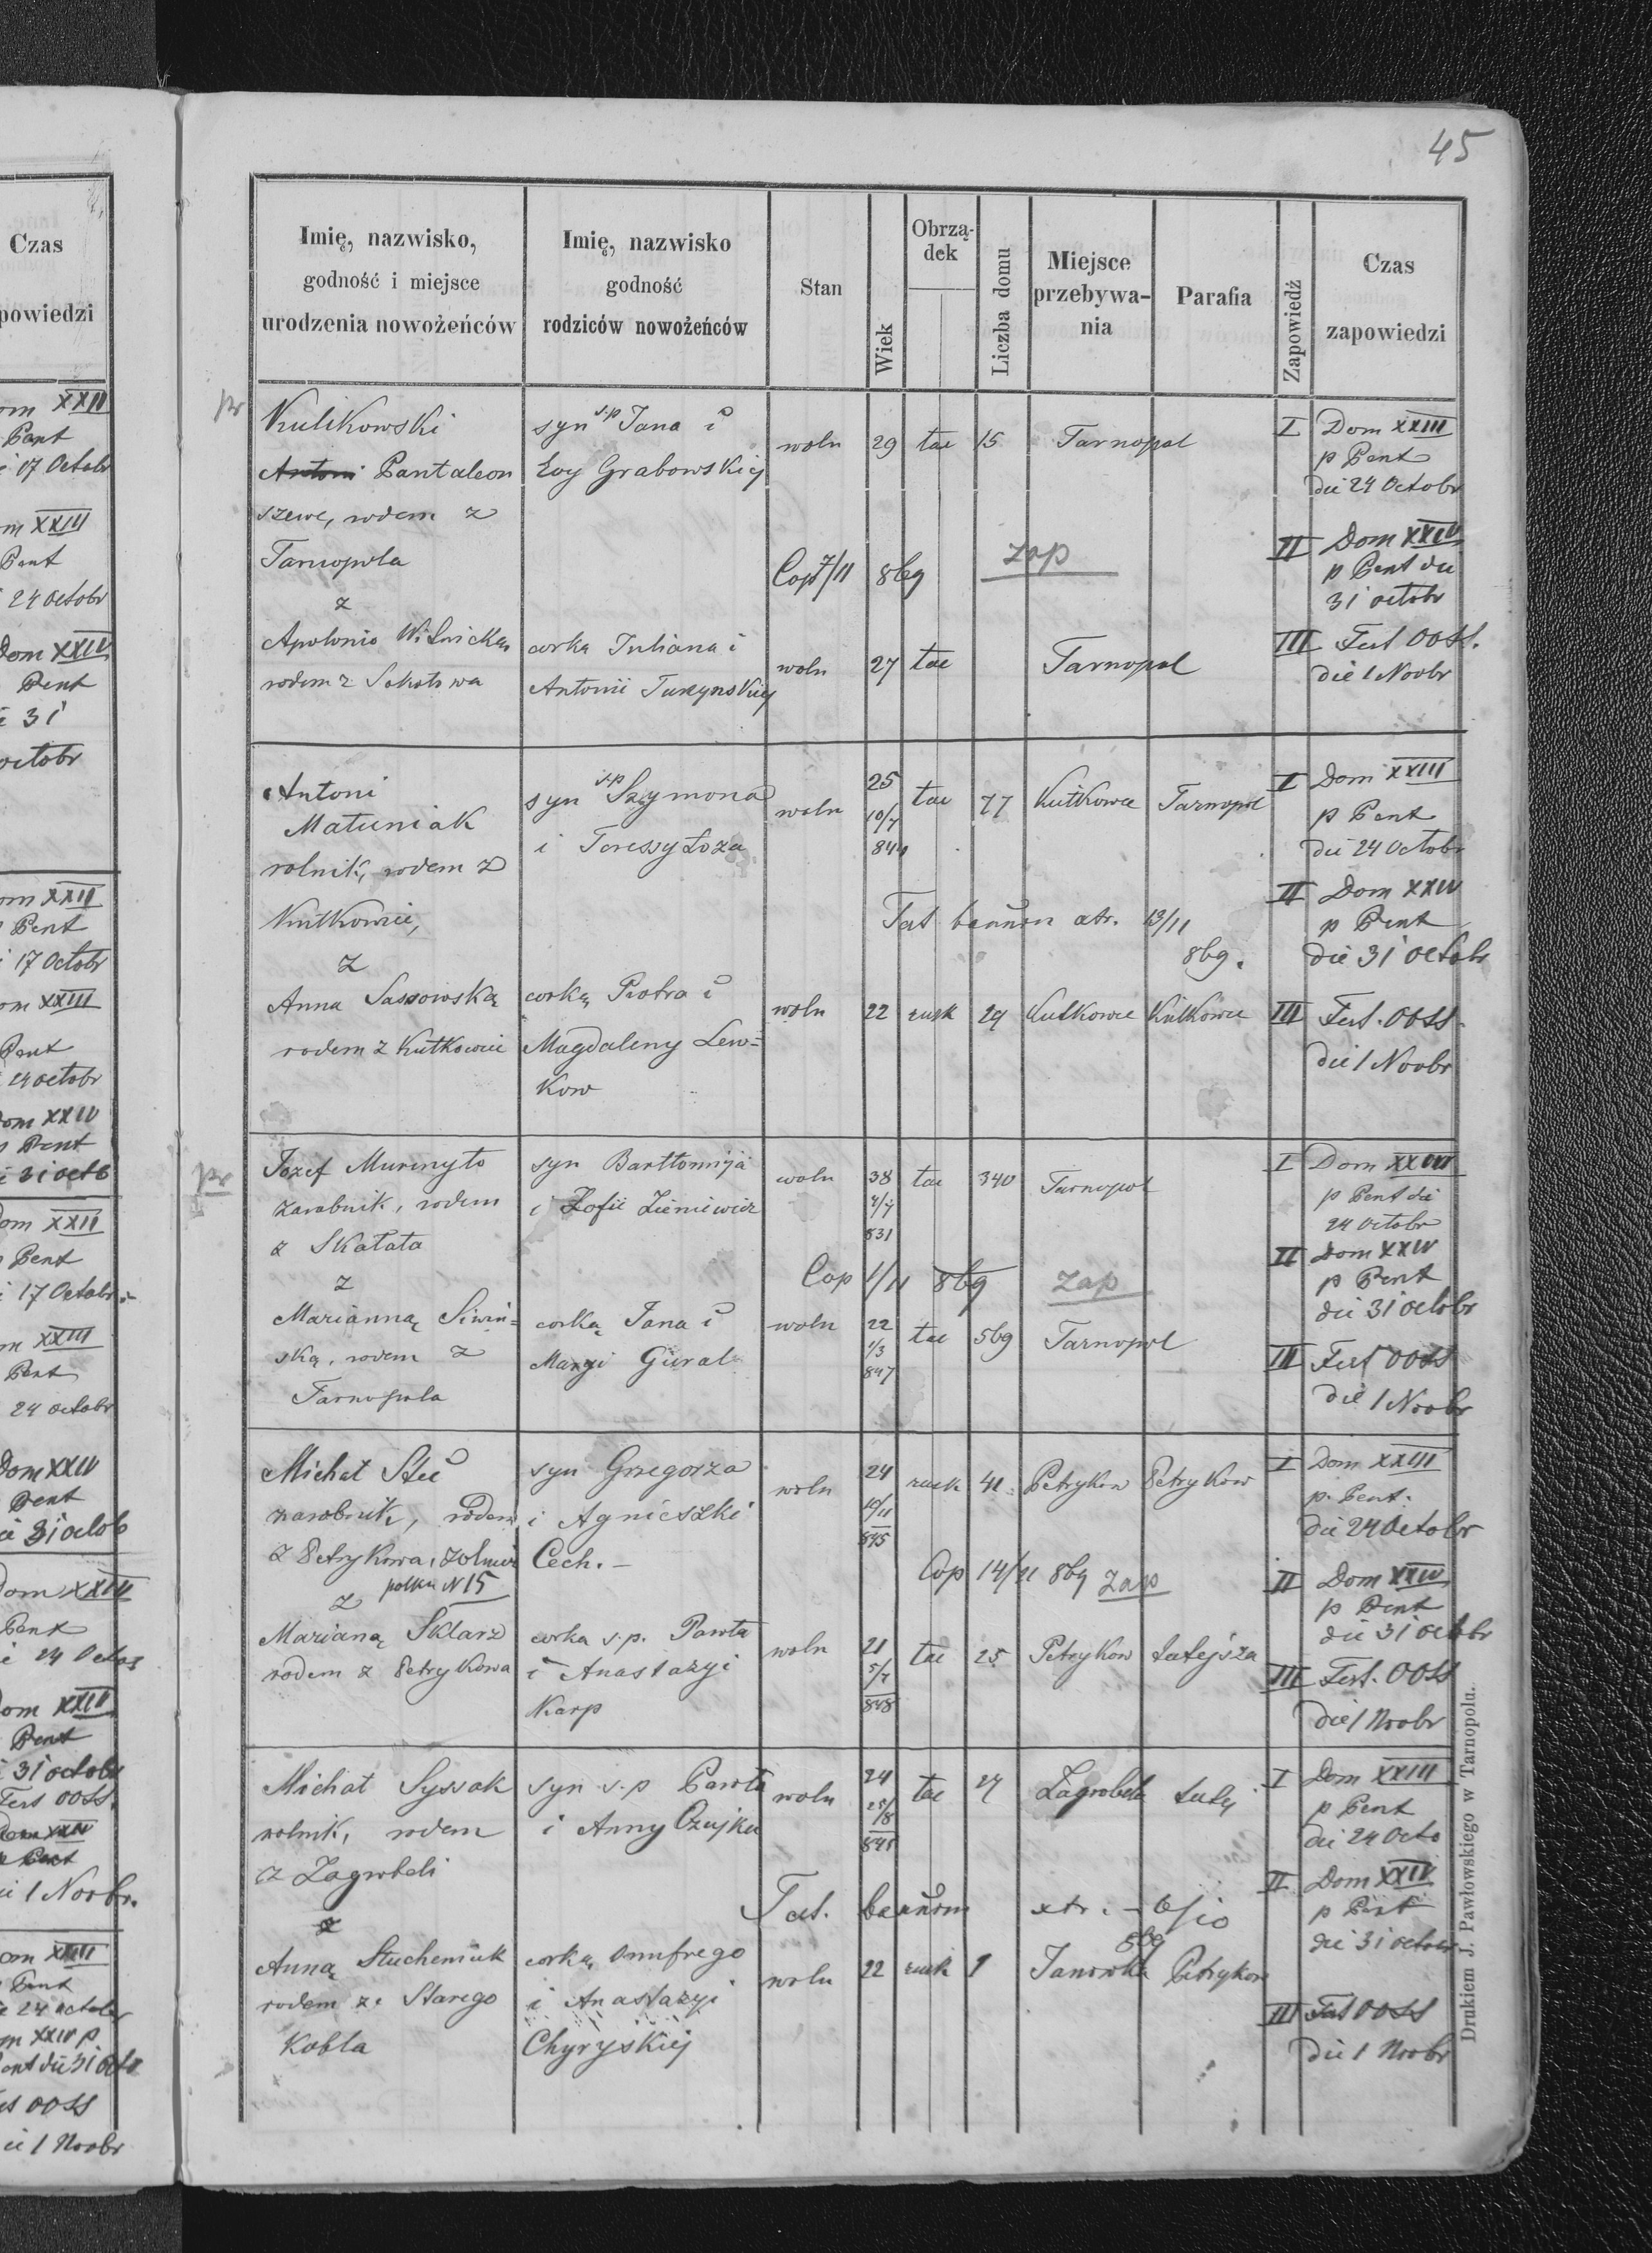 Czas
powiedzi
om XXII
Pent
17 Octobr
om XXIII
Pent
24 octobr
Dom XXIV
Pent
31
octobr
om XXII
p Pent
17 Octobr
om XXIII
Pent
24 octobr
om XXIV
p Pent
31 octb
om XXII
p Pent
17 Octobr
m XXIII
Pent
24 octobr
Dom XXIV
Pent
31 octob
Dom XXIII
Pent
24 Octo
om XXIV
Pent
31 octobr
Fest OOSS.
1 Novbr.
om XXIII
Pent
24 octobr
m XXIV p
Pent die 31 Octo
OOSS
1 Novbr
45
Imię, nazwisko,
godność i miejsce
urodzenia nowożeńców
Imię, nazwisko
godność
rodziców nowożeńców
Stan
Wiek
Obrzą-
dek
Liczba domu
Miejsce
przebywa-
nia
Parafia
Zapowiedź
Czas
zapowiedzi
pr
Kulikowski
Antoni Pantaleon
szewc, rodem z
Tarnopola
z
Apolonio Wilnicką
rodem z Sokołowa
syn s.p Jana i
Ewy Grabowskiej
corka Juliana i
Antonii Tuszynskiej
woln 29 tac 15 Tarnopol
Cop 7/11 869 zap
woln 27 tac Tarnopol
I Dom XXIII
p Pent
die 24 Octobr
II Dom XXIV
p Pent die
31 octobr
III Fest OOSS.
die 1 Novbr
Antoni
Matuniak
rolnik, rodem z
Kutkowiec,
z
Anna Sassowską
rodem z Kutkowiec
syn s.p Szymona
i Teressy Łoza
corką Piotra i
Magdaleny Lew=
kow
woln 25
10/7
844 tac 77 Kutkowce Tarnopol
Tat bannon xtr. 13/11
869.
woln 22 rusk 29 Kutkowce Kutkowce
I Dom XXIII
p Pent
die 24 Octobr
II Dom XXIV
p Pent
die 31 octobr
III Fest. OOSS.
die 1 Novbr
pr
Jozef Murmyło
zarobnik, rodem
z Skałata
z
Marianną Siwiń=
ską, rodem z
Tarnopola
syn Bartłomija
i Zofii Zieniewicz
corką Jana i
Maryi Gural
woln 38
831 tac 340 Tarnopol
Cop 1/11 869 zap
woln 22
1/3
847 tac 569 Tarnopol
I Dom XXIII
p Pent die
24 octobr
II Dom XXIV
p Pent
die 31 octobr
III Fest OOSS
die 1 Novbr
Michał Stec
zarobnik, rodem
z Petrykowa, żołnierz
polku N 15
z
Marianą Sklarz
rodem z Petrykowa
syn Grzegorza
i Agnieszki
Cech. –
corka s.p. Pawła
i Anastazyi
Karp
woln 24
10/11
845 rusk 41 Petrykow Petrykow
Cop 14/11 869 zap
woln 21
5/7
848 tac 25 Petrykow tutejsza
I Dom XXIII
p. Pent.
die 24 Octobr
II Dom XXIV
p Pent
die 31 octobr
III Fest. OOSS
die 1 Novbr
Michał Syssak
rolnik, rodem
z Zagrobeli
z
Anną Stucheniuk
rodem ze Starego
Kobla
syn s.p Pawła
i Anny Czujko
corką Onufrego
i Anastazyi
Chyryskiej
woln 24
28/8
845 tac 27 Zagrobela tutej
Tat. bannon xtr. –
869
woln 22 rusk 1 Janowka Petrykow
I Dom XXIII
p Pent
die 24 Octo
II Dom XXIV
p Pent
die 31 octobr
III Fest OOSS
die 1 Novbr
Drukiem J. Pawłowskiego w Tarnopolu.